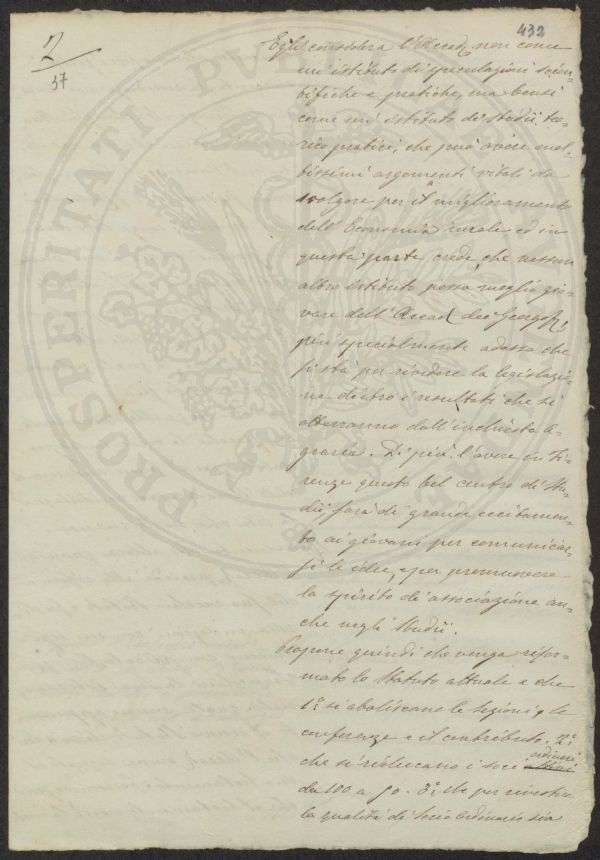 432
2
37
Egli considera l'Accad. non come
un istituto di speculazioni scien-
tifiche e pratiche, ma bensì
come un istituto di studii teo-
rico pratici, che può avere mol-
tissimi argomenti vitali da
svolgere per il miglioramento
dell'Economia rurale ed in
questa parte crede, che nessun
altro istituto possa meglio gio-
vare dell'Accad. dei Georgof.,
più specialmente adesso che
si sta per rivedere la legislazio-
ne dietro i resultati che si
otterranno dall'inchiesta a-
graria. Di più l'avere in Fi-
renze questo bel centro di Stu-
dii, farà di grande eccitamen-
to ai giovani per comunicar-
si le idee, e per promuovere
lo spirito di associazione an-
che negli Studii.
Propone quindi che venga rifor-
mato lo Statuto attuale e che
1° si aboliscano le lezioni, le
conferenze e il contributo. 2°
che si riducano i soci ordinari
da 100 a 50. 3° che per rivestire
la qualità di Socio Ordinario sia
PROSPERITATI PVB